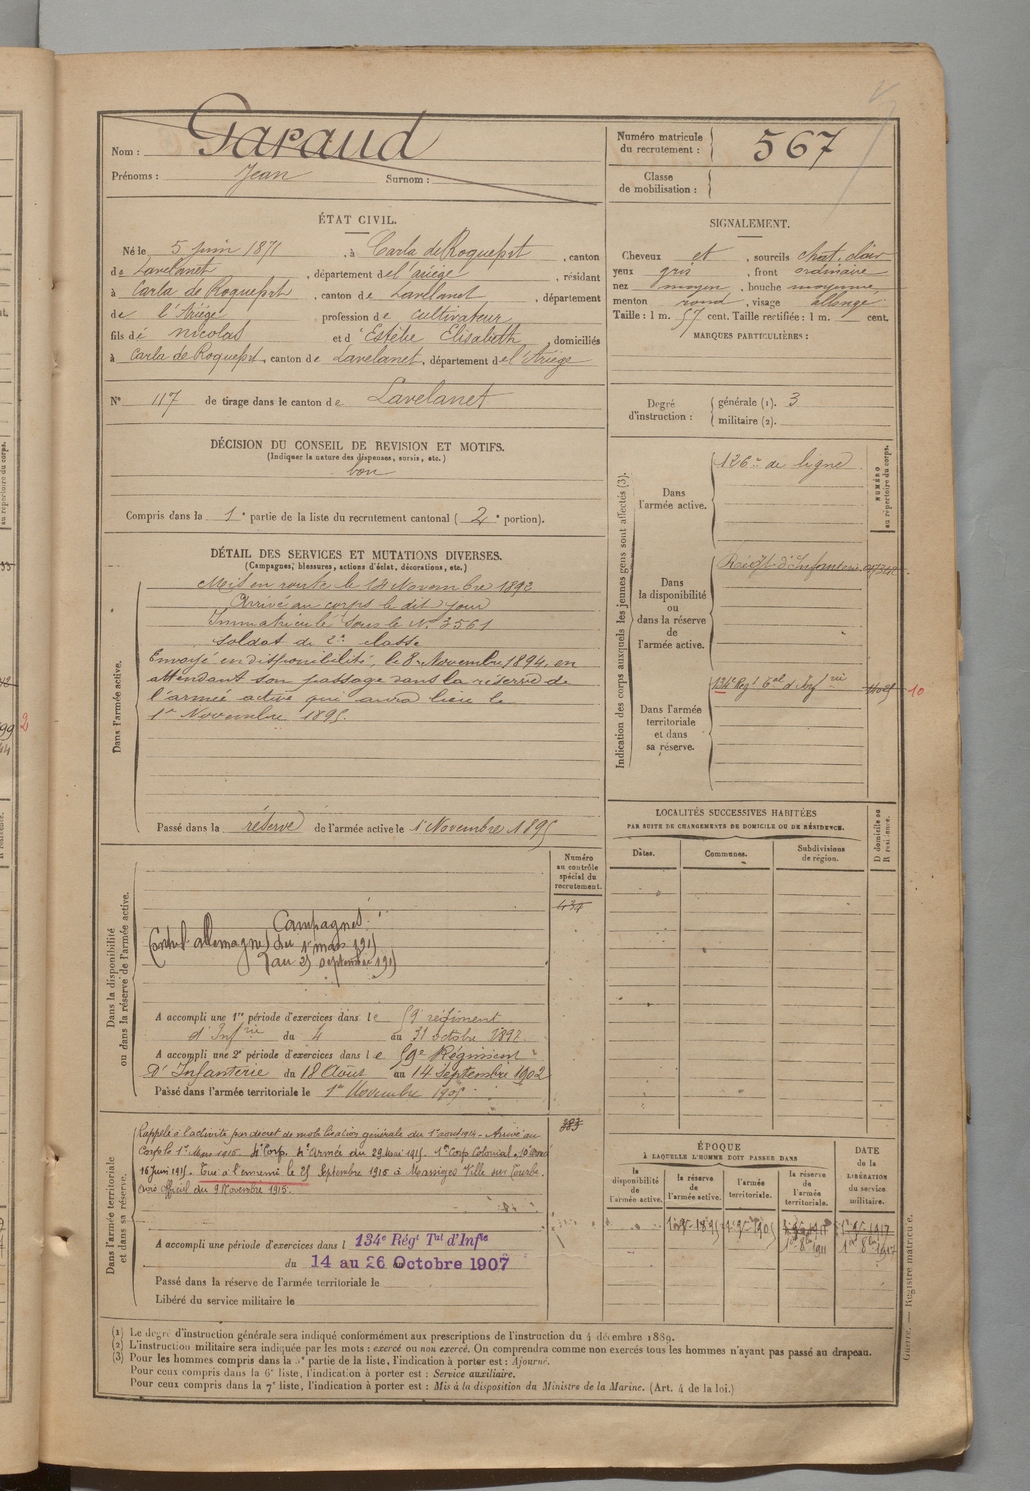 Nom : Garaud
Prénoms : Jean Surnom :
Numéro matricule du recrutement : 567
Classe de mobilisation :
ÉTAT CIVIL.
Né le 5 juin 1871, à Carla de Roquefort, canton
de Lavelanet, département de l'ariège, résidant
à Carla de Roquefort, canton de Lavelanet, département
de l'Ariège profession de cultivateur
fils de nicolas et d'Estèbe Elisabeth, domiciliés
à Carla de Roquefort, canton de Lavelanet, département de l'Ariège
N° 117 de tirage dans le canton de Lavelanet
SIGNALEMENT.
Cheveux et, sourcils chat. clair
yeux gris, front ordinaire
nez moyen, bouche moyenne,
menton rond, visage allongé
Taille : 1 m. 57 cent. Taille rectifiée : 1 m. cent.
MARQUES PARTICULIÈRES :
Degré d'instruction : générale (1). 3
militaire (2).
DÉCISION DU CONSEIL DE REVISION ET MOTIFS.
(Indiquer la nature des dispenses, sursis, etc.)
bon
Compris dans la 1e partie de la liste du recrutement cantonal ( 2e portion).
DÉTAIL DES SERVICES ET MUTATIONS DIVERSES.
(Campagnes, blessures, actions d'éclat, décorations, etc.)
Dans l'armée active.
Mis en route le 14 Novembre 1892
Arrivé au corps le dit jour
Immatriculé sous le N° 3561
soldat de 2e classe
Envoyé en disponibilité, le 8 Novembre 1894, en
attendant son passage dans la réserve de
l'armée active qui aura lieu le
1er Novembre 1895.
Passé dans la réserve de l'armée active le 1r Novembre 1895
Indication des corps auxquels les jeunes gens sont affectés (3).
NUMÉRO au répertoire du corps.
Dans l'armée active.
126e de ligne
Dans la disponibilité ou dans la réserve de l'armée active.
Régt d'Infanterie
Dans l'armée territoriale et dans sa réserve.
134e Régt Tal d'Infrie
10
LOCALITÉS SUCCESSIVES HABITÉES
PAR SUITE DE CHANGEMENTS DE DOMICILE OU DE RÉSIDENCE.
Dates. Communes. Subdivisions de région. D domicile ou R résidence.
Dans la disponibilité ou dans la réserve de l'armée active.
Numéro au contrôle spécial du recrutement.
Campagnes
Contre l'allemagne du 1r mars 1915
au 25 septembre 1915
A accompli une 1re période d'exercices dans le 59e régiment
d'Infrie du 4 au 31 octobre 1898
A accompli une 2e période d'exercices dans le 59e Régiment
d'Infanterie du 18 Août au 14 Septembre 1902
Passé dans l'armée territoriale le 1er Novembre 1905
Dans l'armée territoriale et dans sa réserve.
383
Rappelé à l'activité par décret de mobilisation générale du 1er aout 1914 - Arrivé au
Corps le 1er Mars 1915. 4e Corp. 4e Armée du 29 Mai 1915. 1er Corps Colonial
16 Juin 1915. Tué à l'ennemi le 25 Septembre 1915 à Massiges Ville sur Tourbe.
avis officiel du 9 Novembre 1915.
A accompli une période d'exercices dans l 134e Régt Tal d'Infie
du 14 au 26 Octobre 1907
Passé dans la réserve de l'armée territoriale le
Libéré du service militaire le
ÉPOQUE
À LAQUELLE L'HOMME DOIT PASSER DANS
la disponibilité de l'armée active. la réserve de l'armée active. l'armée territoriale. la réserve de l'armée territoriale.
DATE de la LIBÉRATION du service militaire.
1r 9bre 1895 1r 9bre 1905
(1) Le degré d'instruction générale sera indiqué conformément aux prescriptions de l'instruction du 4 décembre 1889.
(2) L'instruction militaire sera indiquée par les mots : exercé ou non exercé. On comprendra comme non exercés tous les hommes n'ayant pas passé au drapeau.
(3) Pour les hommes compris dans la 5e partie de la liste, l'indication à porter est : Ajourné.
Pour ceux compris dans la 6e liste, l'indication à porter est : Service auxiliaire.
Pour ceux compris dans la 7e liste, l'indication à porter est : Mis à la disposition du Ministre de la Marine. (Art. 4 de la loi.)
Guerre. — Registre matricule.